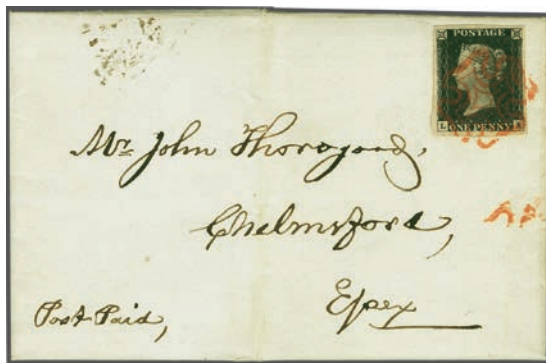 POSTAGE
L ONE PENNY A
Mr. John Thorogood,
Chelmsford,
Eſsex
Post Paid,